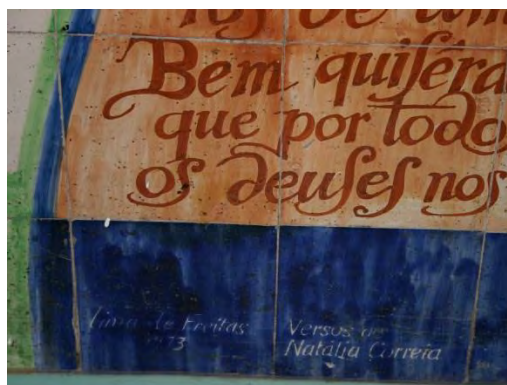 Bem quiséra
que por todo
os deuses nos
Lima de Freitas
Versos de
Natália Correia